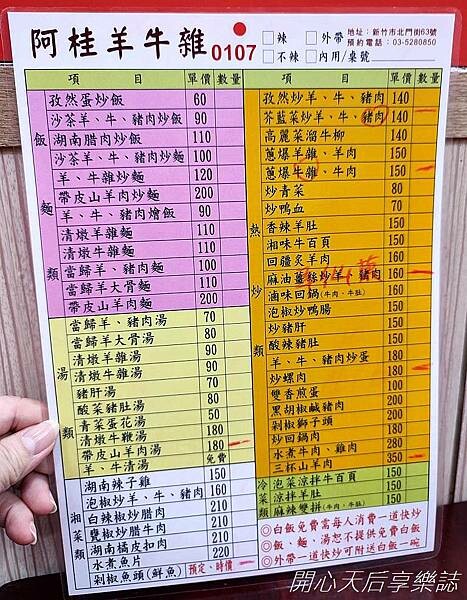 阿桂羊牛雜 0107
辣 外帶
不辣 內用/桌號
地址：新竹市北門街63號
預約電話：03-5280850
項 目 單價 數量
飯
麵
類
孜然蛋炒飯 60
沙茶羊、牛、豬肉炒飯 90
湖南腊肉炒飯 110
沙茶羊、牛、豬肉炒麵 100
羊、牛雜炒麵 120
帶皮山羊肉炒麵 200
羊、牛、豬肉燴飯 90
清燉羊雜麵 110
清燉牛雜麵 110
當歸羊、豬肉麵 100
當歸羊大骨麵 110
帶皮山羊肉麵 200
湯
類
當歸羊、豬肉湯 70
當歸羊大骨湯 80
清燉羊雜湯 90
清燉牛雜湯 90
豬肝湯 70
酸菜豬肚湯 80
青菜蛋花湯 50
清燉牛鞭湯
帶皮山羊肉湯 180
羊、牛清湯 免費
湘
菜
類
湖南辣子雞 150
泡椒炒羊、牛、豬肉 160
白辣椒炒腊肉 210
鹽梅炒腊牛肉 210
湖南橘皮扣肉 210
水煮魚片 220
剁椒魚頭(鮮魚) 預定、時價
項 目 單價 數量
熱
炒
類
孜然炒羊、牛、豬肉 140
芥藍菜炒羊、牛、豬肉 140
高麗菜溜牛柳 140
蔥爆羊雜、羊肉 150
蔥爆牛雜、牛肉 150
炒青菜 80
炒鴨血 70
香辣羊肚 150
湘味牛百頁 150
回疆炙羊肉 160
麻油薑絲炒羊、豬肉 160
滷味回鍋(牛肉、牛肚) 160
泡椒炒鴨腸 150
炒豬肝 150
酸辣豬肚 150
羊、牛、豬肉炒蛋 180
炒螺肉 180
雙香煎蛋 100
黑胡椒鹹豬肉 200
剁椒獅子頭 200
炒回鍋肉 200
水煮牛肉、雞肉 280
三杯山羊肉 350
冷
菜
類
泡菜涼拌牛百頁 150
涼拌羊肚 150
麻辣雙拼(牛肉、牛肚) 150
◎白飯免費需每人消費一道快炒
◎飯、麵、湯恕不提供免費白飯
◎外帶一道快炒可附送白飯一碗
開心天后享樂誌